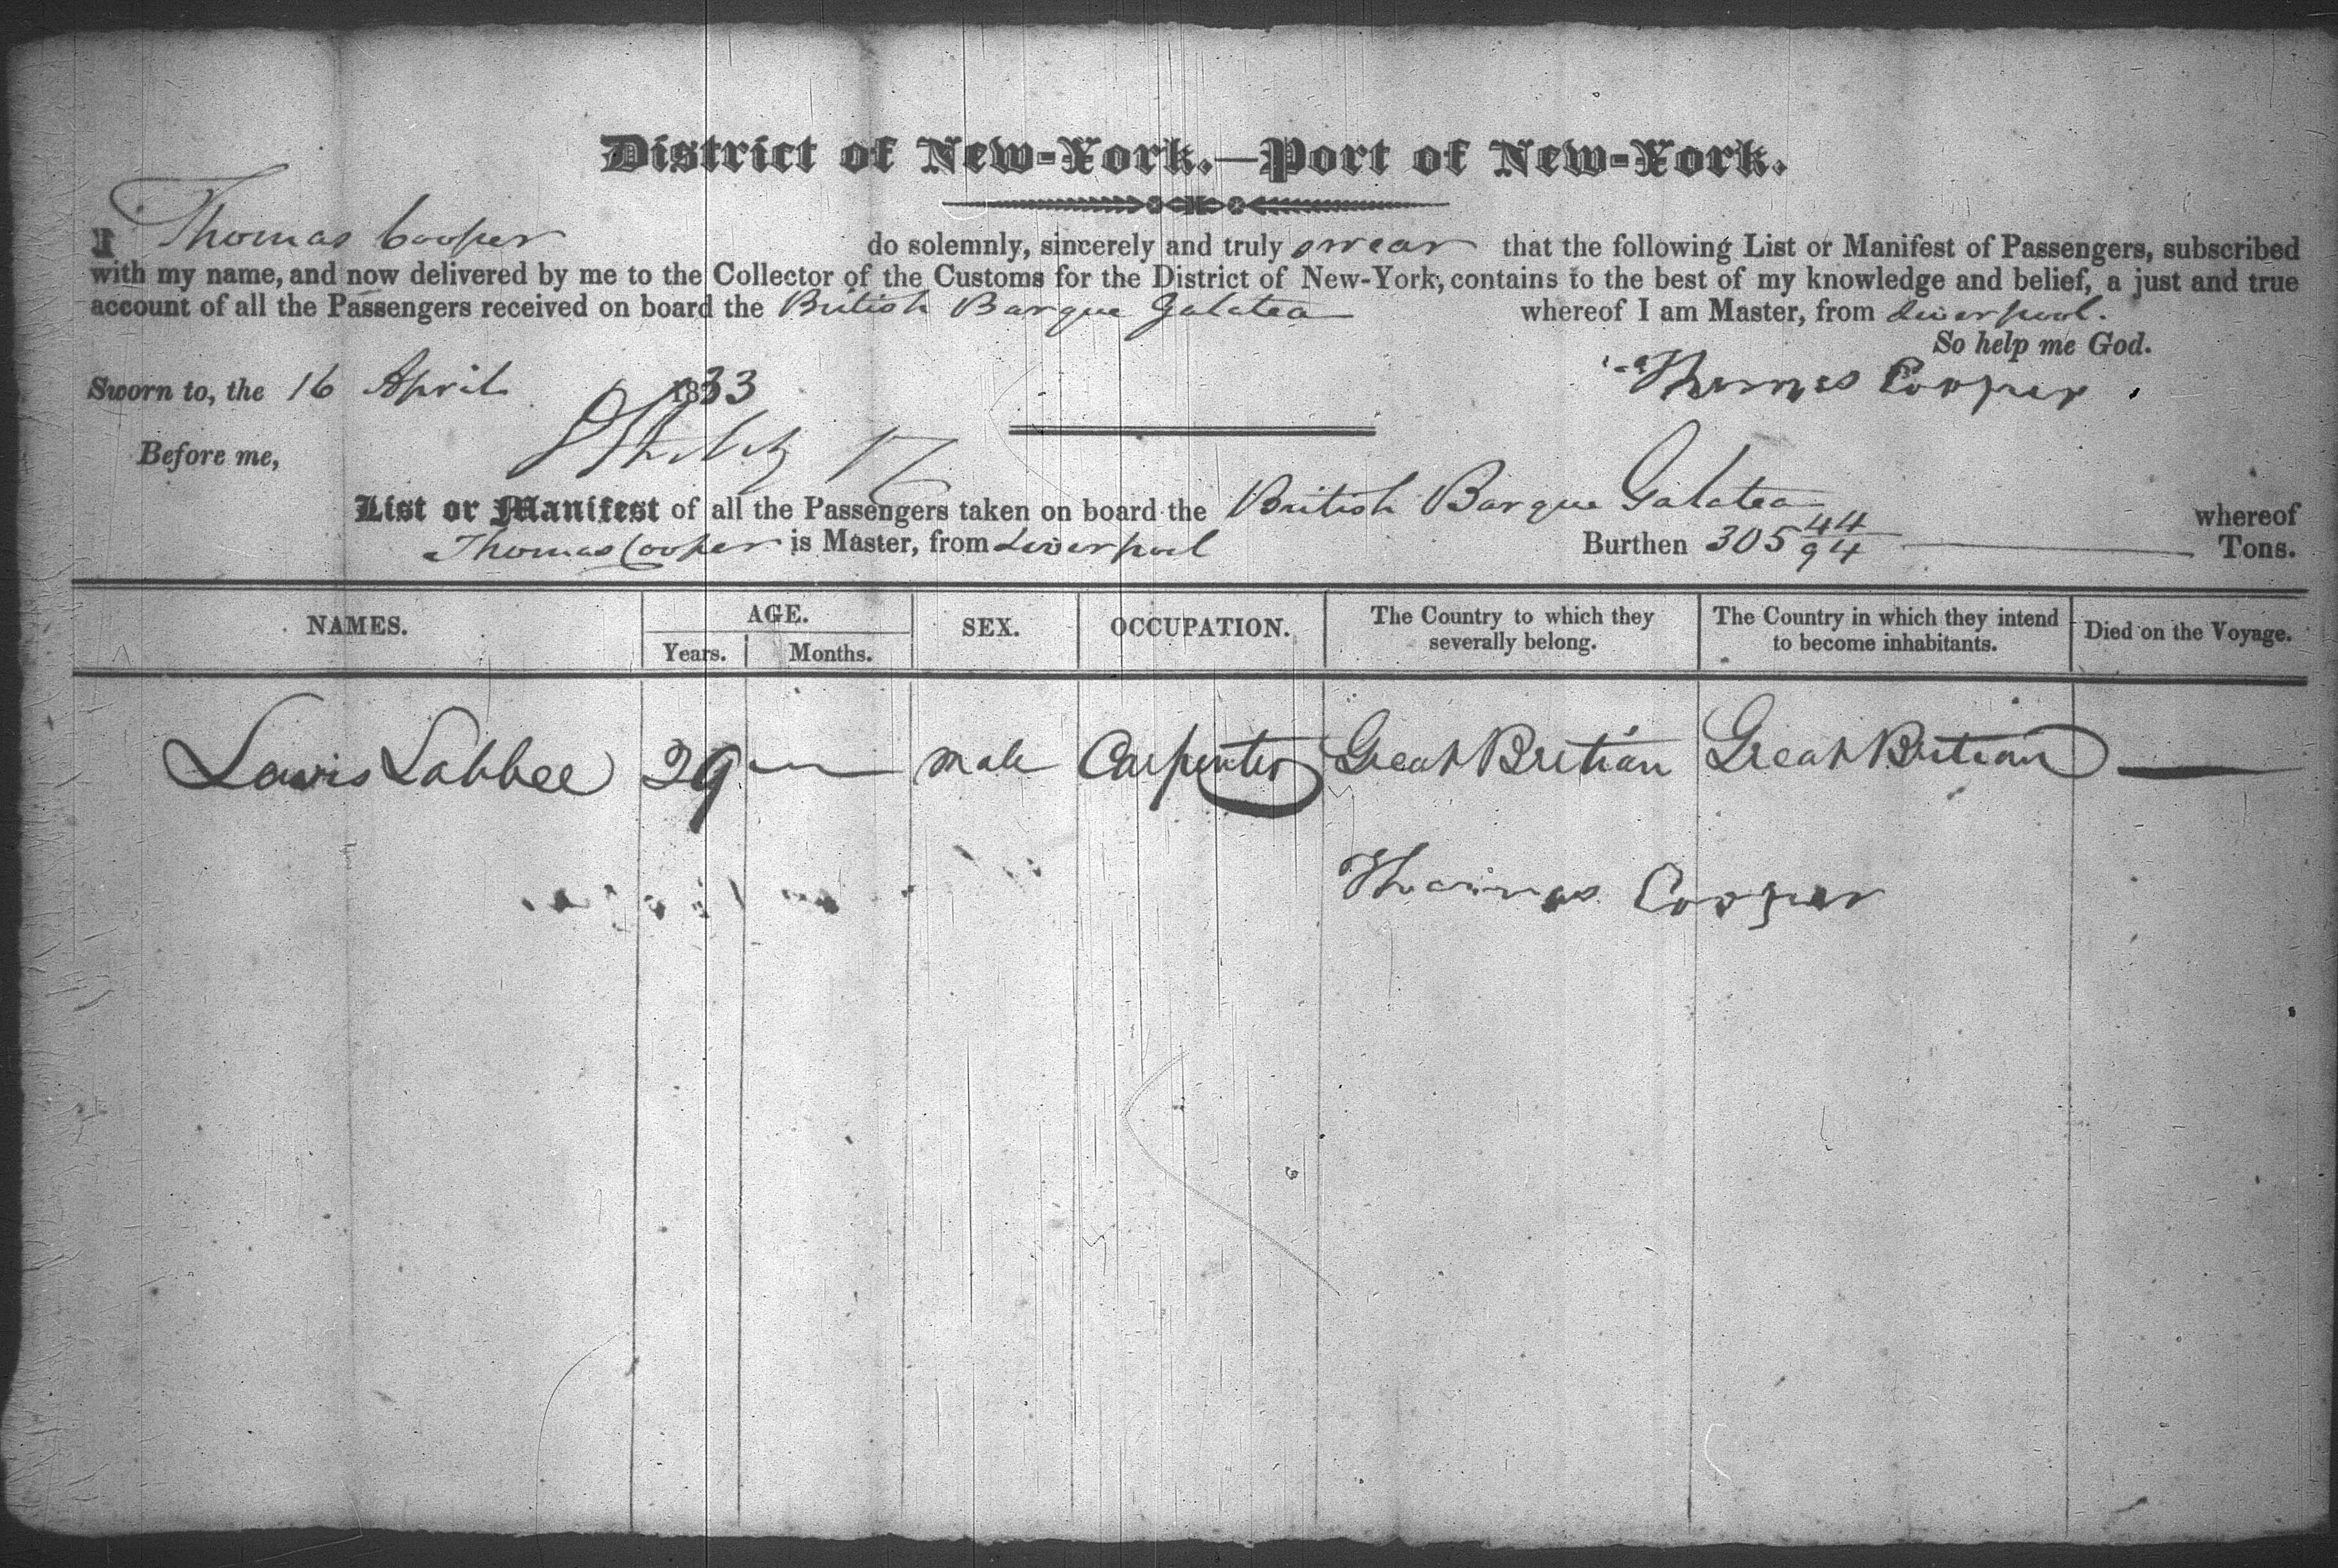 District of New-York.—Port of New-York.
I Thomas Cooper do solemnly, sincerely and truly swear that the following List or Manifest of Passengers, subscribed
with my name, and now delivered by me to the Collector of the Customs for the District of New-York, contains to the best of my knowledge and belief, a just and true
account of all the Passengers received on board the British Barque Galatea whereof I am Master, from Liverpool.
So help me God.
Sworn to, the 16 April 1833 Thomas Cooper
Before me,
List or Manifest of all the Passengers taken on board the British Barque Galatea whereof
Thomas Cooper is Master, from Liverpool Burthen 305 44/94 Tons.
NAMES. AGE. SEX. OCCUPATION. The Country to which they severally belong. The Country in which they intend to become inhabitants. Died on the Voyage.
Years. Months.
Lewis Labbee 29 — male Carpenter Great Bretian Great Bretian —
Thomas Cooper